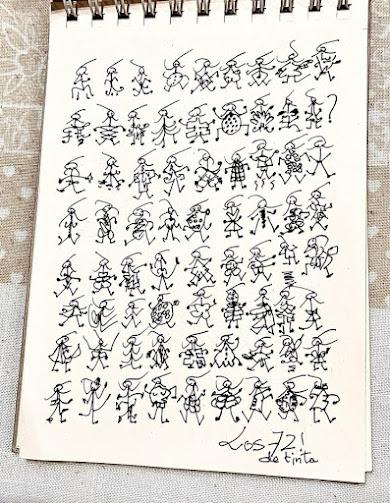 ?
Los 72!
de tinta